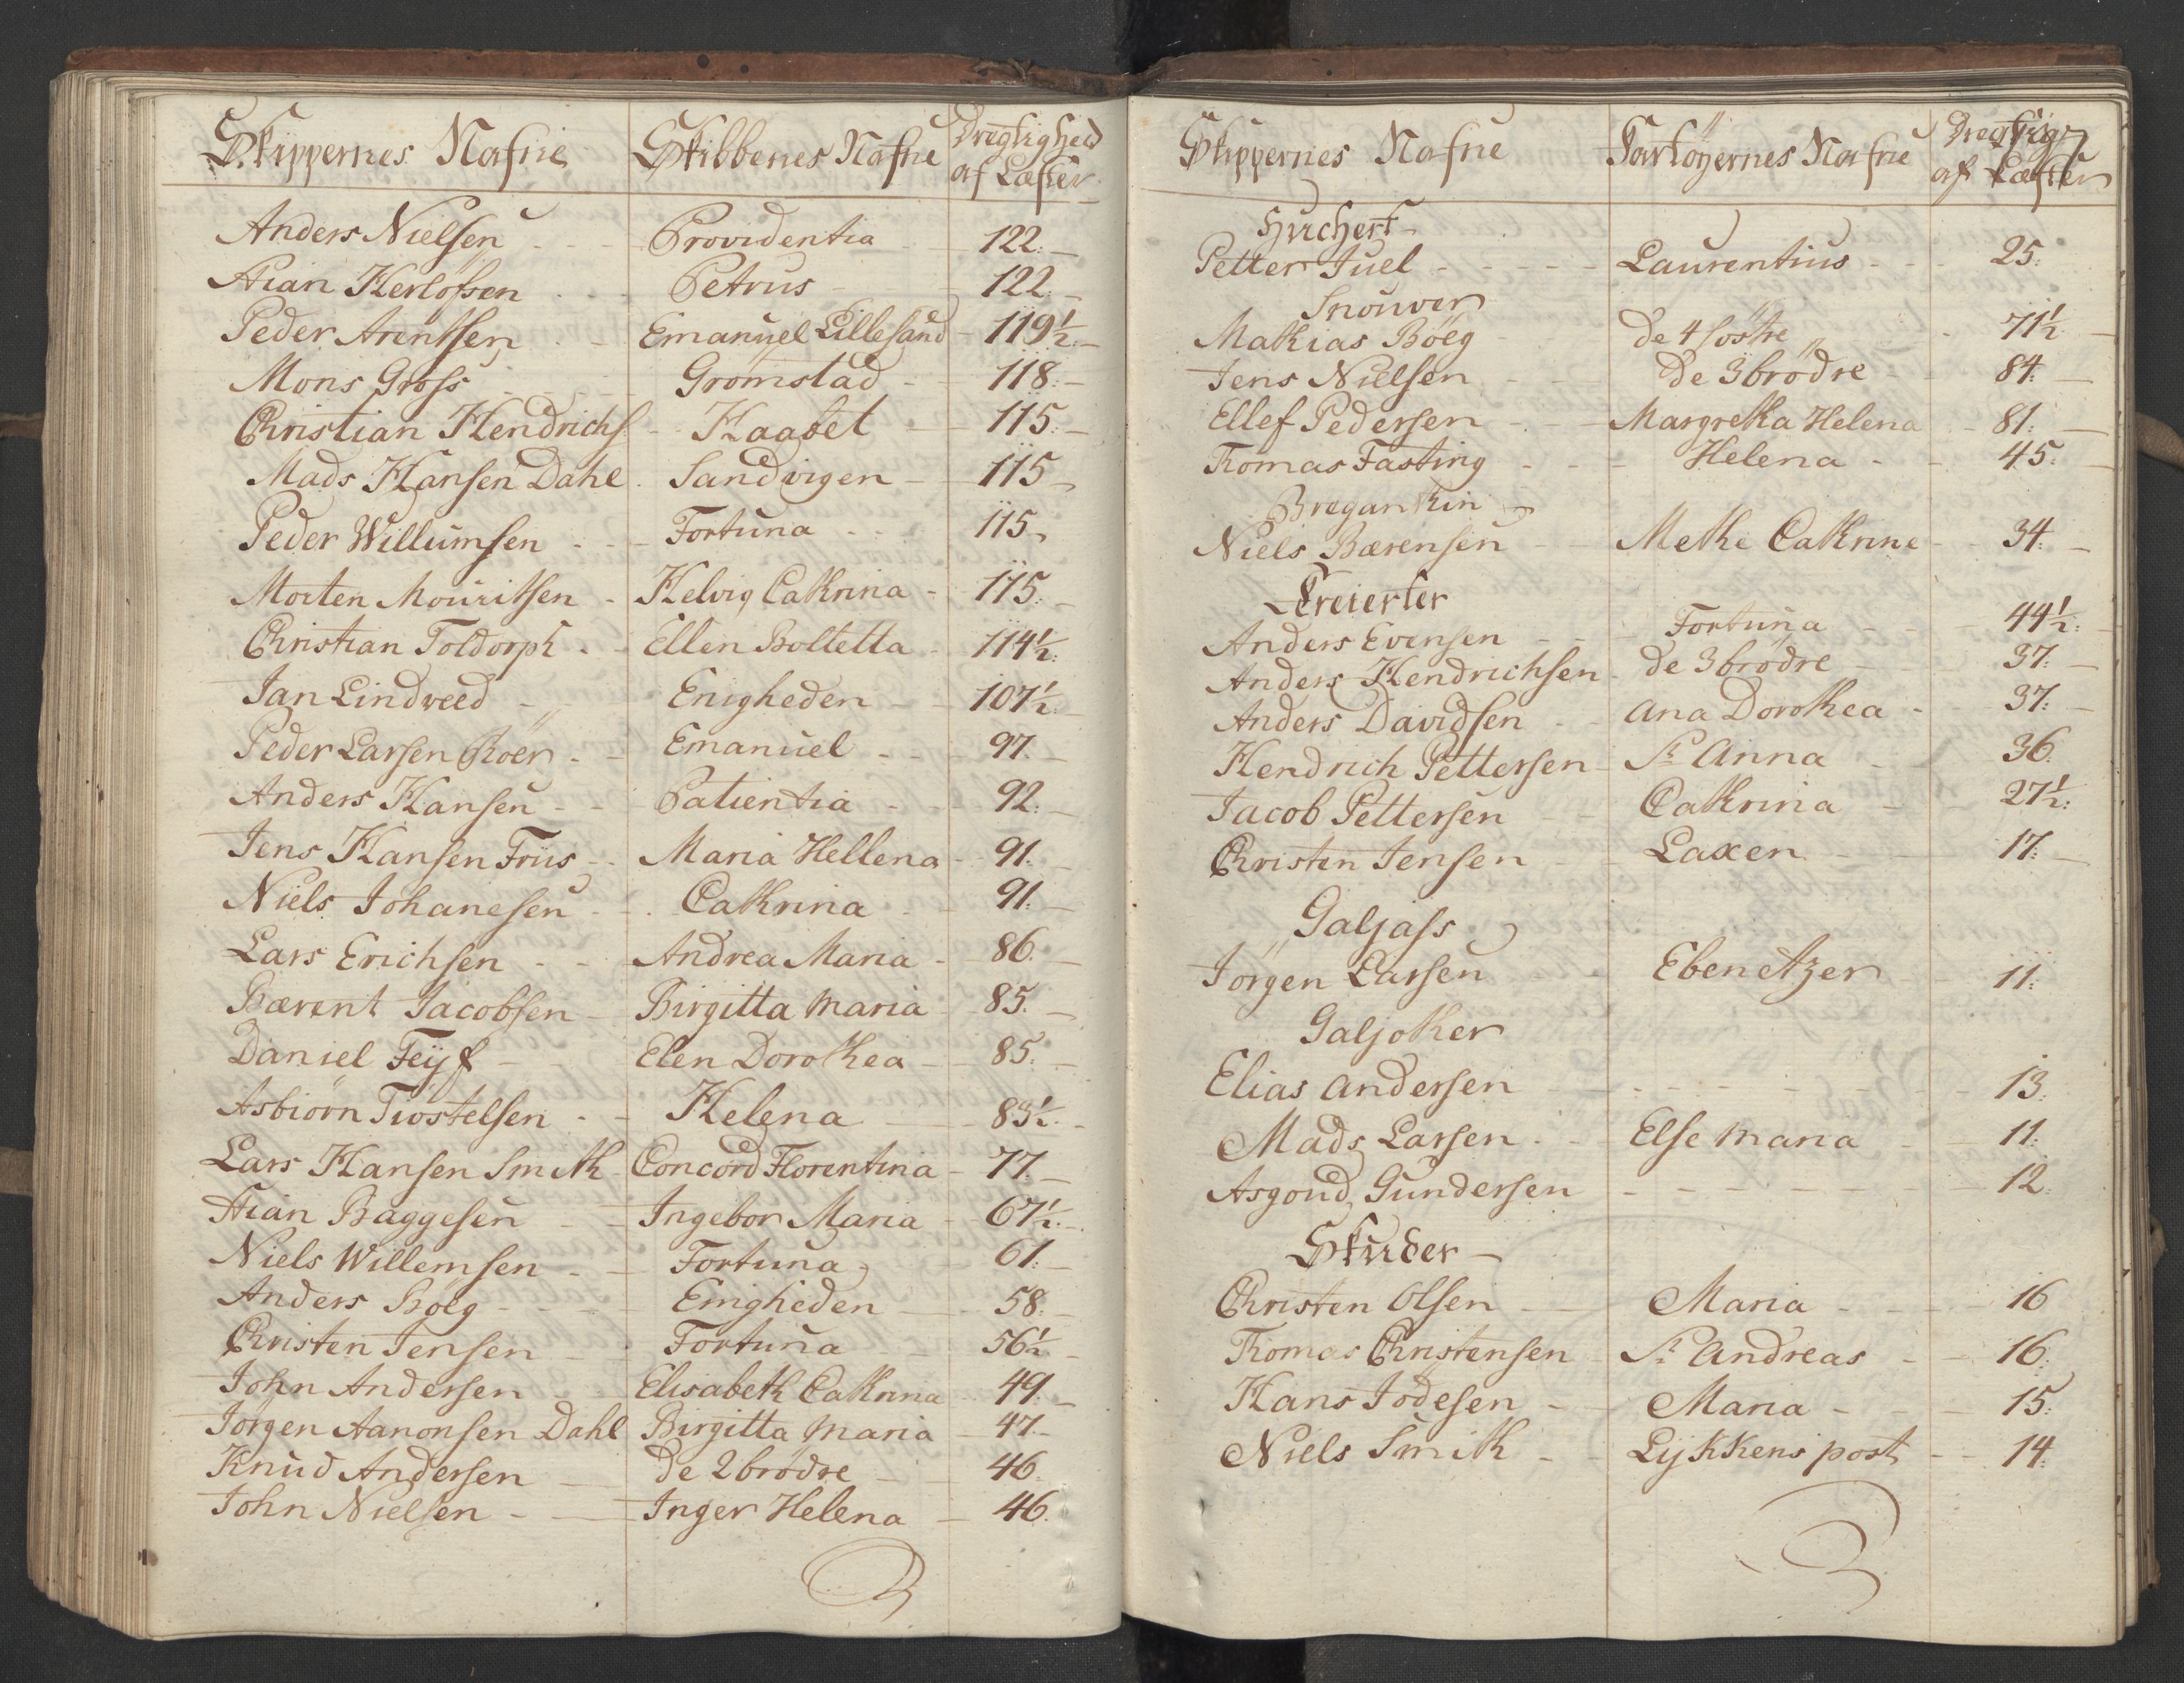 Skippernes Nafne Skibbenes Nafne Dregtighed af Læster
Anders Nielsen - - - Providentia - 122:-
Stian Herlofsen - - - Petrus - 122:-
Peder Arentsen - - Emanuel Lillesand - 119½:-
Mons Gross - - - Grømstad - 118:-
Christian Hendrichs - Haabet - 115:-
Mads Hansen Dahl - Sandvigen - 115-
Peder Willumsen - - - Fortuna - - 115-
Morten Mouritsen - Helvig Cathrina - 115:-
Christian Toldorph - - Ellen Boltetta - 114½:
Jan Lindveed - - Enigheden - - 107½:-
Peder Larsen Röer - - Emanuel - - 97:-
Anders Hansen - - Patientia - - 92:-
Jens Hansen Friis - - Maria Hellena - 91:-
Niels Johanesen - - Cathrina - 91:-
Lars Erichsen - - Andrea Maria - 86:-
Bærent Jacobsen - Birgitta Maria - 85:-
Daniel Feyf - - Elen Dorothea - 85:-
Asbiörn Tiostelsen - - Helena - 83½:-
Lars Hansen Smith - Concord Florentina - 77:-
Stian Baggesen - - Ingebor Maria - 67½:-
Niels Willemsen - - Fortuna - 61:-
Anders Böeg - - - Enigheden - 58:-
Christen Jensen - Fortuna - - 56½-
John Andersen - - Elisabeth Cathrina - 49:-
Jörgen Aanonsen Dahl Birgitta Maria - 47:-
Knud Andersen - de 2 brödre - 46.
John Nielsen - - Inger Helena - 46.
Skippernes Nafne Fartöyernes Nafne Dregtig af Læster
Huchert
Petter Juel - - - - - Laurentius - - - 25:
Snouwer
Mathias Böeg de 4 söstre - 71½:-
Jens Nielsen - - de 3 brödre - 84:-
Ellef Pedersen - - - Margretha Helena - 81:-
Thomas Fasting - - - Helena - - 45:-
Bregantin
Niels Bærensen - Methe Cathrine - 34:-
Creierter
Anders Evensen - - - Fortuna - - - 44½:-
Anders Hendrichsen - de 3 brödre - - 37:-
Anders Davidsen - - Ana Dorothea - - 37:-
Hendrich Pettersen - St Anna - 36.
Jacob Pettersen - - Cathrina - - 27½:
Christen Jensen - - Laxen - - 17:-
Galjass
Jörgen Larsen - - Ebenetzer - 11:
Galjother
Elias Andersen - - - - - - - 13:
Mads Larsen - - Else Maria - - 11:
Asgoud Gundersen - - - - - - - 12.
Skuder -
Christen Olsen - - Maria - - - 16
Thomas Christensen - St Andreas - - 16:
Hans Jodesen - - Maria - - - 15:
Niels Smith - - Lykkens post - - 14: